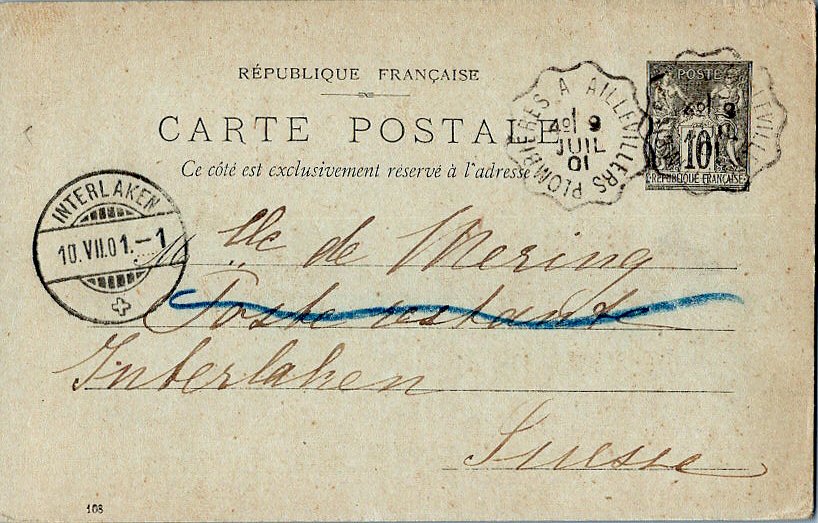 RÉPUBLIQUE FRANÇAISE
CARTE POSTALE
Ce côté est exclusivement réservé à l'adresse
PLOMBIÈRES A AILLEVILLERS
9
JUIL
01
POSTE
10
RÉPUBLIQUE FRANÇAISE
INTERLAKEN
10.VII.01.–1
Mlle de Mering
Poste restante
Interlaken
Suisse
108